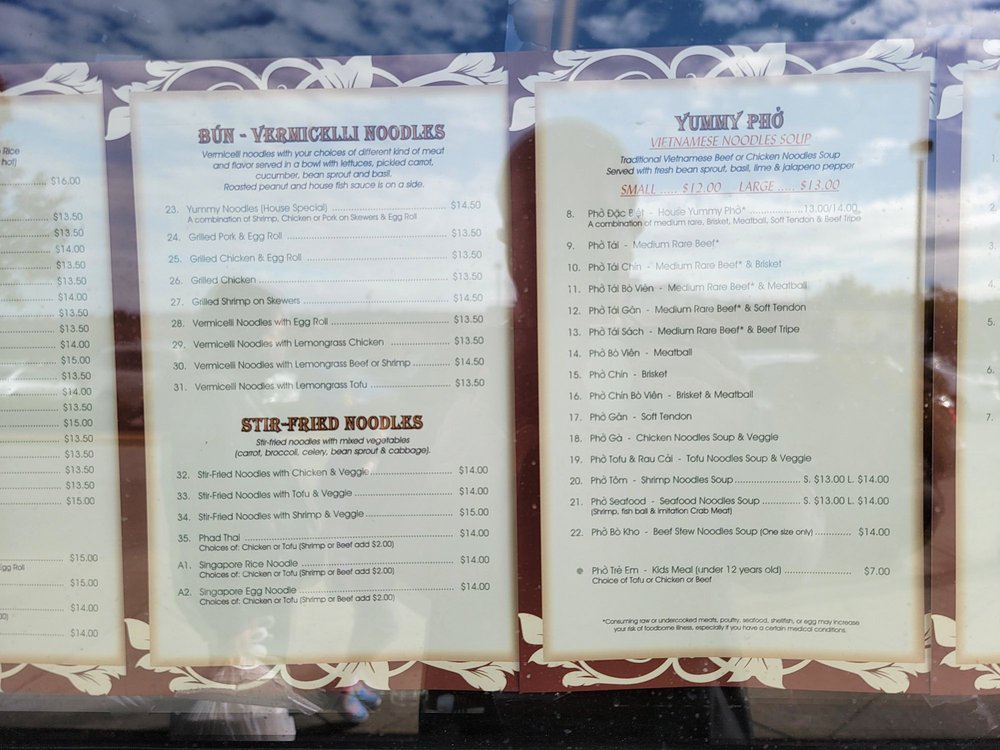 Rice
hot)
$16.00
$13.50
$13.50
$14.00
$13.50
$13.50
$14.00
$13.50
$13.50
$14.00
$15.00
$13.50
$14.00
$13.50
$15.00
$13.50
$13.50
$13.50
$15.00
$15.00
Egg Roll
$15.00
$14.00
$14.00
BÚN - VERMICELLI NOODLES
Vermicelli noodles with your choices of different kind of meat
and flavor served in a bowl with lettuces, pickled carrot,
cucumber, bean sprout and basil.
Roasted peanut and house fish sauce is on a side.
23. Yummy Noodles (House Special) $14.50
A combination of Shrimp, Chicken or Pork on Skewers & Egg Roll
24. Grilled Pork & Egg Roll $13.50
25. Grilled Chicken & Egg Roll $13.50
26. Grilled Chicken $13.50
27. Grilled Shrimp on Skewers $14.50
28. Vermicelli Noodles with Egg Roll $13.50
29. Vermicelli Noodles with Lemongrass Chicken $13.50
30. Vermicelli Noodles with Lemongrass Beef or Shrimp $14.50
31. Vermicelli Noodles with Lemongrass Tofu $13.50
STIR-FRIED NOODLES
Stir-fried noodles with mixed vegetables
(carrot, broccoli, celery, bean sprout & cabbage).
32. Stir-Fried Noodles with Chicken & Veggie $14.00
33. Stir-Fried Noodles with Tofu & Veggie $14.00
34. Stir-Fried Noodles with Shrimp & Veggie $15.00
35. Phad Thai $14.00
Choices of: Chicken or Tofu (Shrimp or Beef add $2.00)
A1. Singapore Rice Noodle $14.00
Choices of: Chicken or Tofu (Shrimp or Beef add $2.00)
A2. Singapore Egg Noodle $14.00
Choices of: Chicken or Tofu (Shrimp or Beef add $2.00)
YUMMY PHỞ
VIETNAMESE NOODLES SOUP
Traditional Vietnamese Beef or Chicken Noodles Soup
Served with fresh bean sprout, basil, lime & jalapeno pepper
SMALL ..... $12.00 LARGE ..... $13.00
8. Phở Đặc Biệt - House Yummy Phở* 13.00/14.00
A combination of medium rare, Brisket, Meatball, Soft Tendon & Beef Tripe
9. Phở Tái - Medium Rare Beef*
10. Phở Tái Chín - Medium Rare Beef* & Brisket
11. Phở Tái Bò Viên - Medium Rare Beef* & Meatball
12. Phở Tái Gân - Medium Rare Beef* & Soft Tendon
13. Phở Tái Sách - Medium Rare Beef* & Beef Tripe
14. Phở Bò Viên - Meatball
15. Phở Chín - Brisket
16. Phở Chín Bò Viên - Brisket & Meatball
17. Phở Gân - Soft Tendon
18. Phở Gà - Chicken Noodles Soup & Veggie
19. Phở Tofu & Rau Cải - Tofu Noodles Soup & Veggie
20. Phở Tôm - Shrimp Noodles Soup S. $13.00 L. $14.00
21. Phở Seafood - Seafood Noodles Soup S. $13.00 L. $14.00
(Shrimp, fish ball & imitation Crab Meat)
22. Phở Bò Kho - Beef Stew Noodles Soup (One size only) $14.00
● Phở Trẻ Em - Kids Meal (under 12 years old) $7.00
Choice of Tofu or Chicken or Beef
*Consuming raw or undercooked meats, poultry, seafood, shellfish, or egg may increase
your risk of foodborne illness, especially if you have a certain medical conditions.
5.
6.
7.